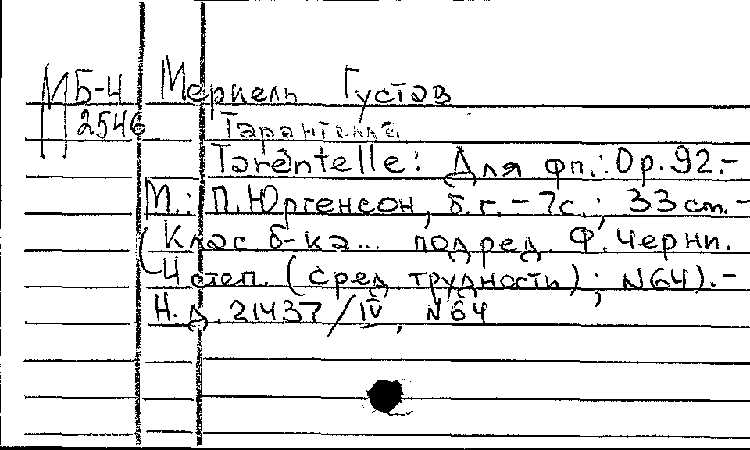 МБ-4 Меркель Густав
П 2546 Тарантелла
Tarentelle: Для фп.: Op.92.-
М.: П. Юргенсон, б.г. - 7с.; 33 cm.-
(Клас б-ка... под ред. Ф. Черни.
4 степ. (сред. трудности); N64).-
Н.Д. 21437/IV, N64